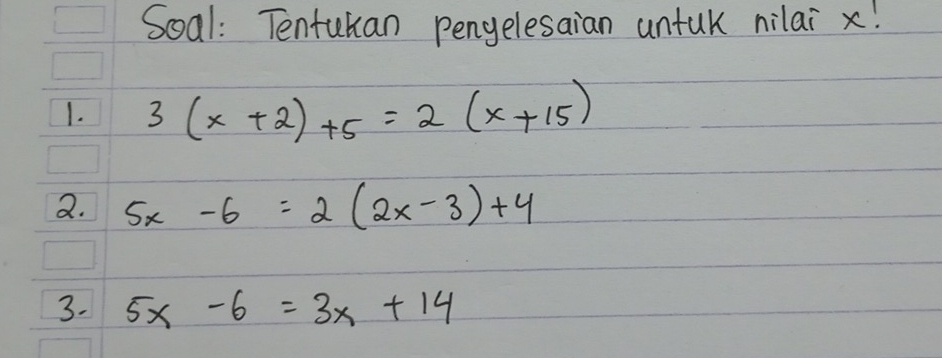 Soal: Tentukan penyelesaian untuk nilai x!
1. 3 (x + 2) + 5 = 2 (x + 15)
2. 5x - 6 = 2 (2x - 3) + 4
3. 5x - 6 = 3x + 14